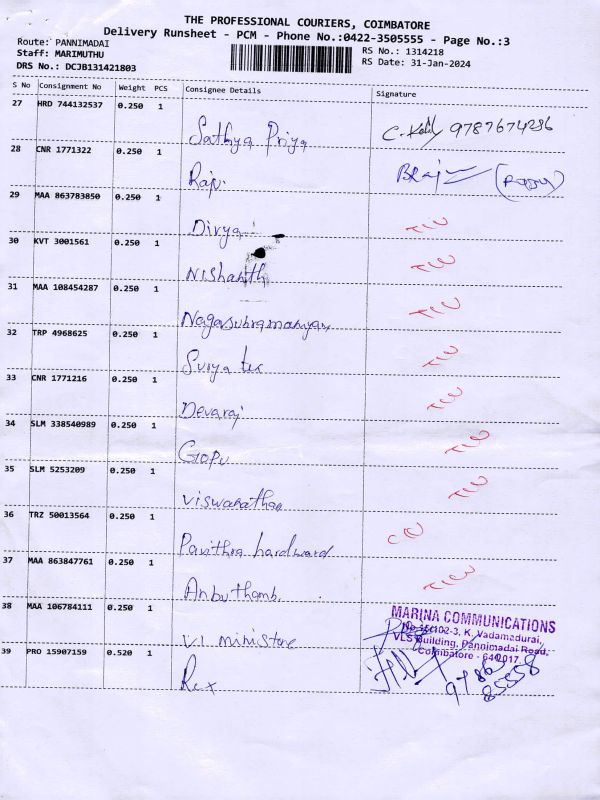 THE PROFESSIONAL COURIERS, COIMBATORE
Delivery Runsheet - PCM - Phone No.:0422-3505555 - Page No.:3
Route: PANNIMADAI
Staff: MARIMUTHU
DRS No.: DCJB131421803
RS No.: 1314218
RS Date: 31-Jan-2024
S No Consignment No Weight PCS Consignee Details Signature
27 HRD 744132537 0.250 1
Sathya Priya 9787674236
28 CNR 1771322 0.250 1
Raju
29 MAA 863783850 0.250 1
Divya
30 KVT 3001561 0.250 1
Nishanth
31 MAA 108454287 0.250 1
Nagasubramaniyan
32 TRP 4968625 0.250 1
Surya tex
33 CNR 1771216 0.250 1
Devaraj
34 SLM 338540989 0.250 1
Gopu
35 SLM 5253209 0.250 1
Viswanathan
36 TRZ 50013564 0.250 1
Pavithra hardward
37 MAA 863847761 0.250 1
Anbuthamb.
38 MAA 106784111 0.250 1
V.I. ministore
MARINA COMMUNICATIONS
K. Vadamadurai,
VLS Building, Pannimadai Road,
Coimbatore - 641017.
39 PRO 15907159 0.520 1
Rex